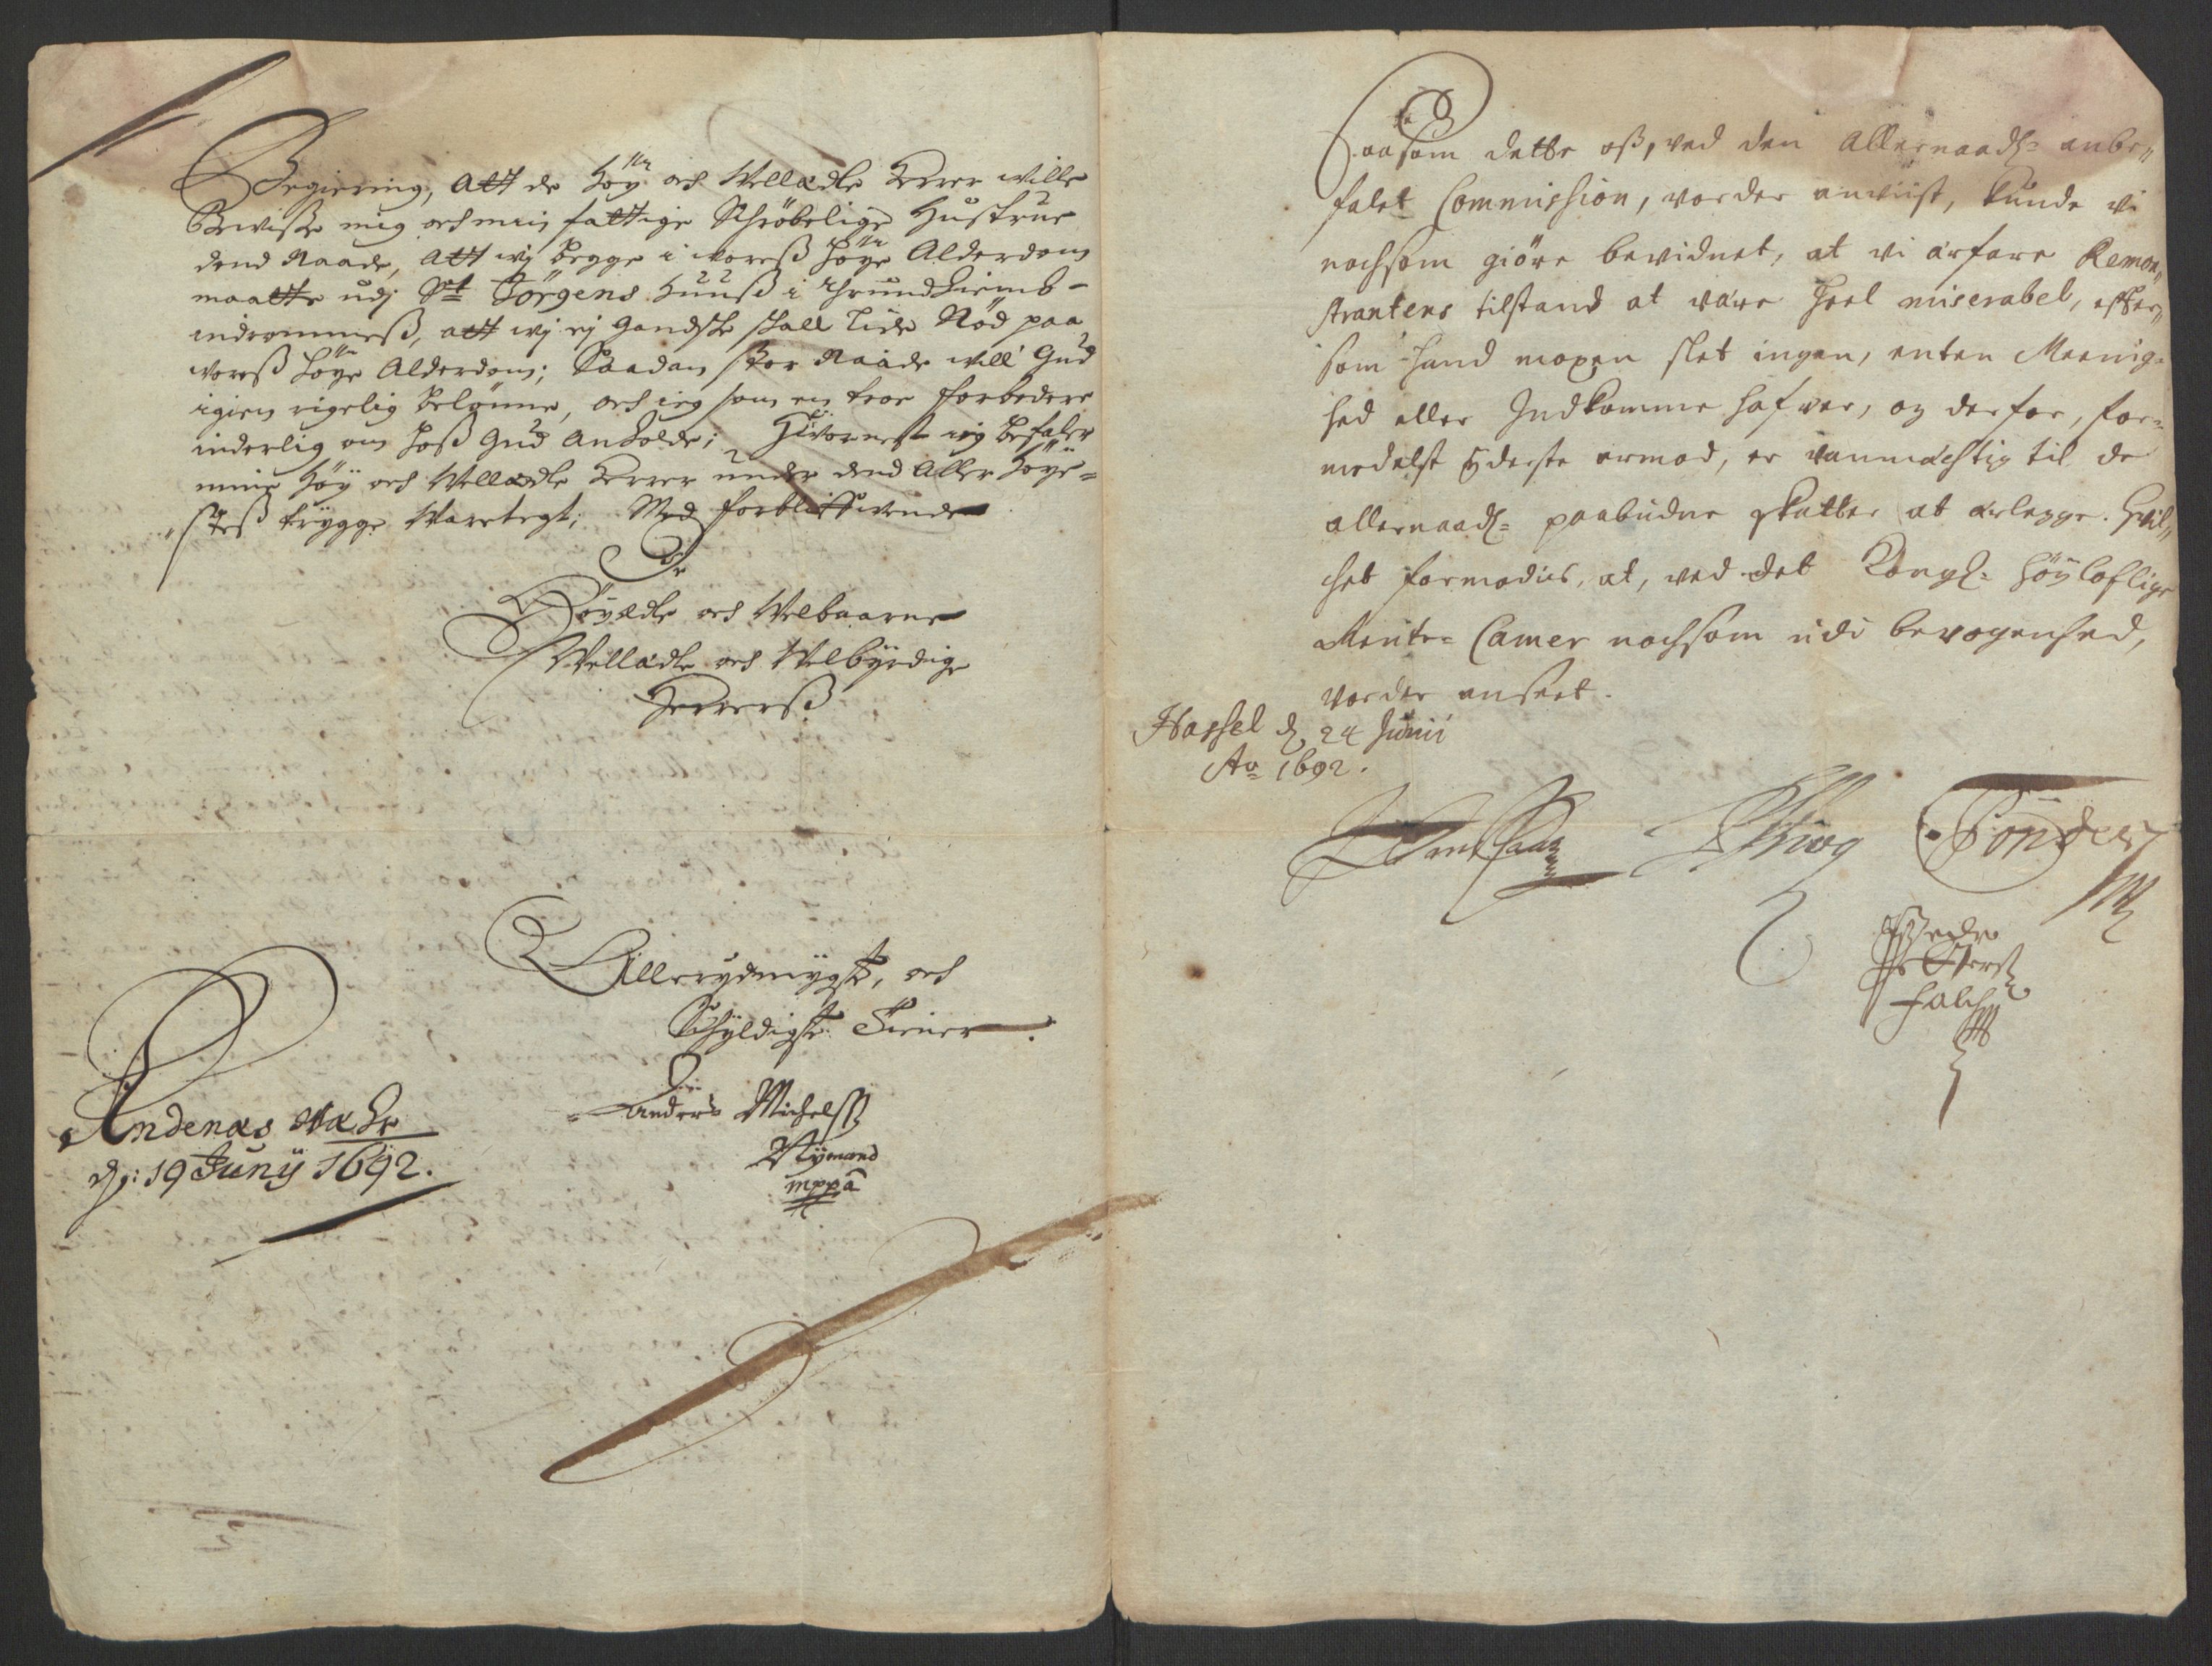 Begiering, Att de Höy och Wellædle Herrer wille
Bewisse mig och min fattige Schröbelige Hustrue
dend Naade, Att wij begge i woress höye Alderdom
maatte udj St Jörgens Huuss i Thrundhiemb
indrommess, att wij ej gandske skall lide Nöd paa
woress höye Alderdom; Saadan stor Naade will Gud
igien rigelig belönne, och ieg som en troe forbedere
inderlig om hoss Gud anholde; Hwornest ieg befaler
mine Höy och Wellædle Herrer under dend Aller Höye-
stess trygge Waretegt; Med forbliffwende
Höyædle och Welbaarne
Wellædle och Welbyrdige
Herrerss
Allerydmygste, och
Schyldigste Tiener.
Anders Michelss
Nymand
mppa
Andenæs
dj: 19 Junij 1692.
Saasom dette oss, ved den Allernaadl= anbe„
falet Commission, vorder anviist, kunde vi
nochsom giöre bevidnet, at vi arfare Remon„
strantens tilstand at være heel miserabel, efter„
som hand mogen slet ingen, enten Meenig-
hed eller Indkomme hafwer, og derfor, for-
medelst yderste armod, er vanmächtig til de
allernaadl= paabudne skatter at erlegge. Hvil„
chet formodis, at, ved det Kongl= höyloflige
Rente= Camer nochsom udi bevogenhed,
vorder anseet.
Hassel d. 24 Junii
Ao 1692.
Tönder
Peder
Falch